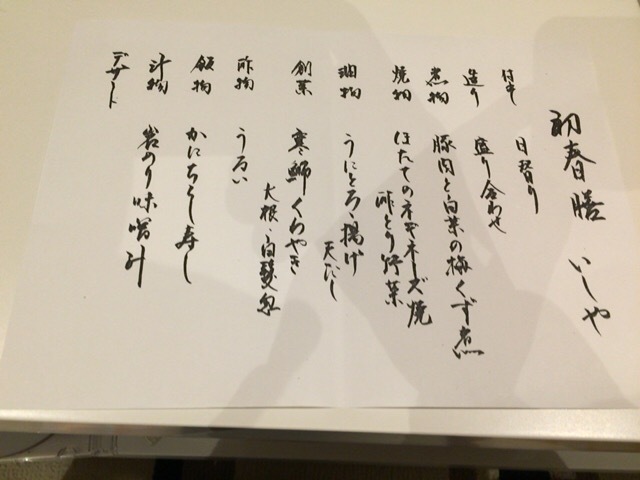 初春膳 いしや
付中 日替り
造り 盛り合わせ
煮物 豚肉と白菜の梅くず煮
焼物 ほたてのネギネーズ焼
酢とり野菜
油物 うにとろろ揚げ
天だし
創菜 寒鰤くわやき
大根、白髪忽
酢物 うるい
飯物 かにちらし寿し
汁物 岩のり味噌汁
デザート